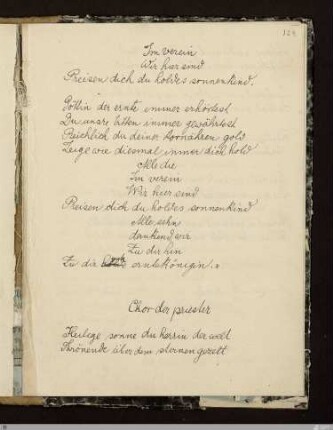 Im verein
Wir hier sind
Preisen dich du holdes sonnenkind.
Göttin der ernte immer erhörtest
Du unsre bitten immer gewährtest
Reichlich du deiner kornähren gold
Zeige wie diesmal immer dich hold
Alle die
Im verein
Wir hier sind
Preisen dich du holdes sonnenkind
Alle sehn
dankend wir
Zu dir hin
Zu dir erntekönigin.
Chor der priester
Heilege sonne du herrin der welt
Thronende über dem sternen gezelt